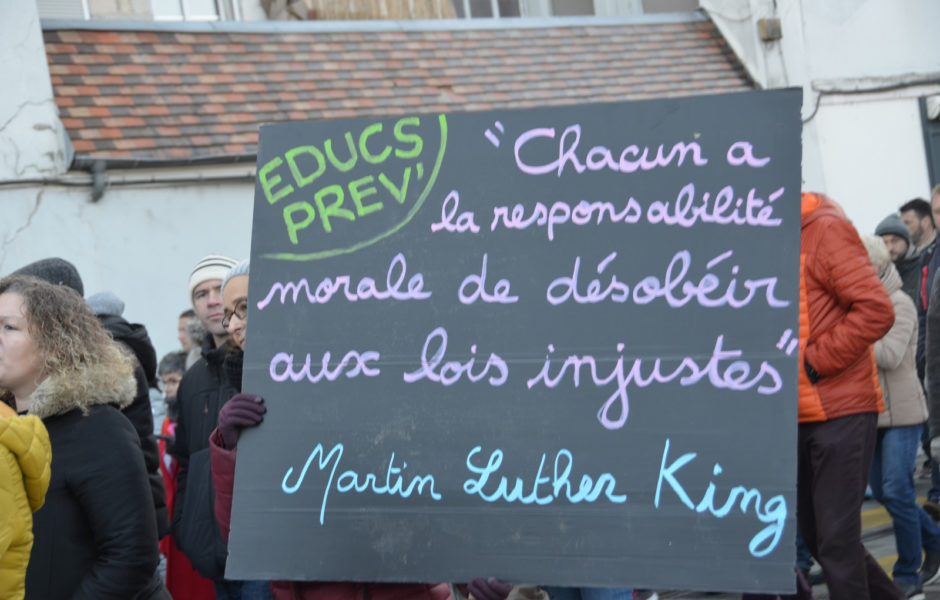 EDUCS
PREV'
"Chacun a
la responsabilité
morale de désobéir
aux lois injustes"
Martin Luther King